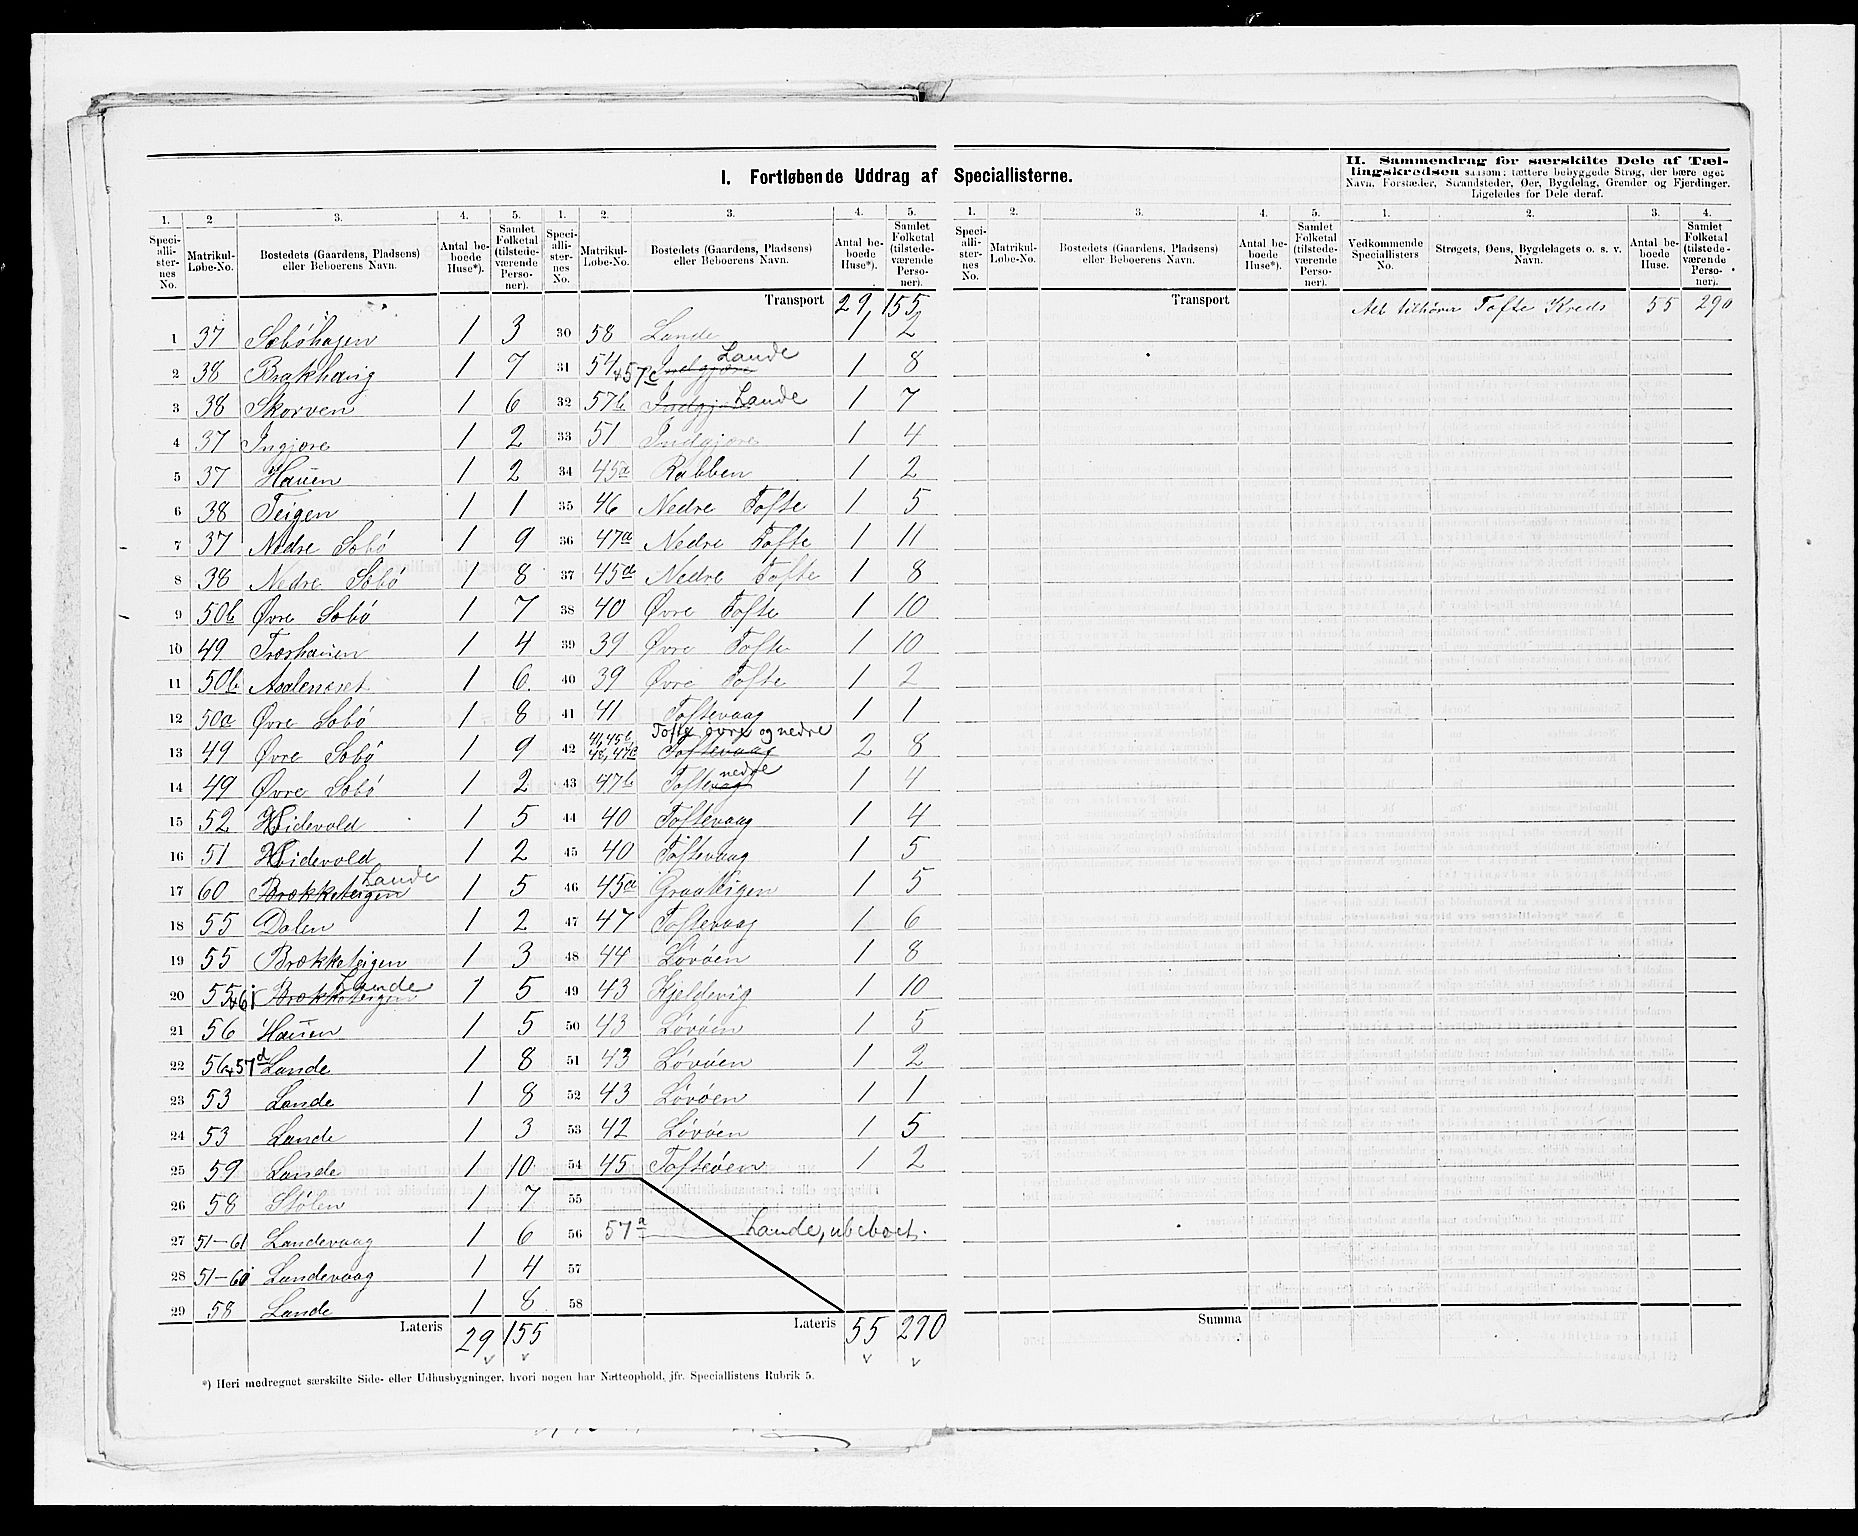 I. Fortløbende Uddrag af Speciallisterne.
II. Sammendrag for særskilte Dele af Tæl-
lingskredsen saasom: tættere bebyggede Strøg, der bære eget
Navn, Forstæder, Strandsteder, Øer, Bygdelag, Grender og Fjerdinger.
Ligeledes for Dele deraf.
1. 2 3. 4. 5. 1. 2. 3. 4. 5. 1. 2. 3. 4. 5. 1. 2. 3. 4.
Speciallisternes No. Matrikul-Løbe-No. Bostedets (Gaardens, Pladsens) eller Beboerens Navn. Antal beboede Huse*). Samlet Folketal (tilstedeværende Personer).
Speciallisternes No. Matrikul-Løbe-No. Bostedets (Gaardens, Pladsens) eller Beboerens Navn. Antal beboede Huse*). Samlet Folketal (tilstedeværende Personer).
Speciallisternes No. Matrikul-Løbe-No. Bostedets (Gaardens, Pladsens) eller Beboerens Navn. Antal beboede Huse*). Samlet Folketal (tilstedeværende Personer).
Vedkommende Speciallisters No. Strøgets, Øens, Bygdelagets o. s. v. Navn. Antal beboede Huse. Samlet Folketal (tilstedeværende Personer).
1 37 Søbøhagen 1 3
2 38 Brakhaug 1 7
3 38 Skorven 1 6
4 37 Ingjøre 1 2
5 37 Hauen 1 2
6 38 Teigen 1 1
7 37 Nedre Søbø 1 9
8 38 Nedre Søbø 1 8
9 50b Øvre Søbø 1 7
10 49 Træshauen 1 4
11 50b 1 6
12 50a Øvre Søbø 1 8
13 49 Øvre Søbø 1 9
14 49 Øvre Søbø 1 2
15 52 Hvidevold 1 5
16 51 Hvidevold 1 2
17 60 Brækketeigen Lande 1 5
18 55 Dalen 1 2
19 55 Brækketeigen 1 3
20 55+61 Brækketeigen Lande 1 5
21 56 Hauen 1 5
22 56+57d Lande 1 8
23 53 Lande 1 8
24 53 Lande 1 3
25 59 Lande 1 10
26 58 Stølen 1 7
27 51-61 Landevaag 1 6
28 51-60 Landevaag 1 4
29 58 Lande 1 8
Lateris 29 155
Transport 29 155
30 58 Lande 1 2
31 54+57c Indgjøre Lande 1 8
32 57b Indgjøre Lande 1 7
33 51 Indgjøre 1 4
34 45a Rabben 1 2
35 46 Nedre Tofte 1 5
36 47a Nedre Tofte 1 11
37 45a Nedre Tofte 1 8
38 40 Øvre Tofte 1 10
39 39 Øvre Tofte 1 10
40 39 Øvre Tofte 1 2
41 41 Toftevaag 1 1
42 41, 45b, 48, 47c Toftevaag Tofte øvre og nedre 2 8
43 47b Toftevaag nedre 1 4
44 40 Toftevaag 1 4
45 40 Toftevaag 1 5
46 45a Graateigen 1 5
47 47 Toftevaag 1 6
48 44 Løvøen 1 8
49 43 Kjeldevig 1 10
50 43 Løvøen 1 5
51 43 Løvøen 1 2
52 43 Løvøen 1 1
53 42 Løvøen 1 5
54 45 Tofteøen 1 2
55
56 57a Lande, ubeboet.
57
58
Lateris 55 290
Transport
Summa
Alt tilhører Tofte Kreds 55 290
*) Heri medregnet særskilte Side- eller Udhusbygninger, hvori nogen har Natteophold, jfr. Speciallistens Rubrik 5.